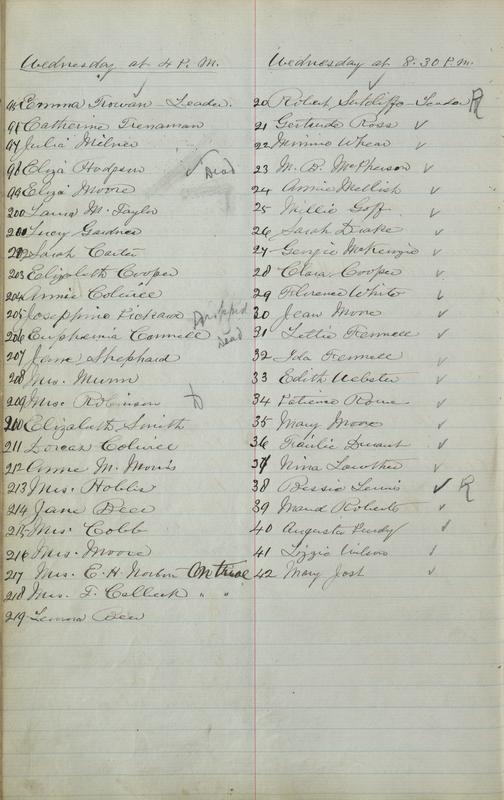 Wednesday at 4 P.M.
95 Emma Trowan - Leader.
96 Catherine Trenaman
97 Julia Milner
98 Eliza Hodgson ✓ Dead
99 Eliza Moore
200 Laura M. Taylor
201 Lucy Gardner
202 Sarah Carter
203 Elizabeth Cooper
204 Annie Colwice
205 Josephine Dropped
206 Euphemia Connell Dead
207 Jane Shephard
208 Mrs. Munn
209 Mrs. Robinson D
210 Elizabeth Smith
211 Dorcas Colwice
212 Anne M. Morris
213 Mrs. Hobbs
214 Jane
215 Mrs. Cobb
216 Mrs. Moore
217 Mrs. E. H. On trial
218 Mrs. T. " "
219
Wednesday at 8.30 P.M.
20 Robert Sutcliffe - Leader R
21 Gertrude Ross ✓
22 Minnie ✓
23 M. B. McPherson ✓
24 Annie Mellish ✓
25 Millie Goff ✓
26 Sarah Drake ✓
27 Georgie McKenzie ✓
28 Clara Cooper ✓
29 Florence White ✓
30 Jean Moore ✓
31 Lottie Fennell ✓
32 Ida Fennell ✓
33 Edith Webster ✓
34 Patience ✓
35 Mary Moore ✓
36 ✓
37 Nina Lowther ✓
38 Bessie Lewis ✓ R
39 Maud Roberts ✓
40 Augusta Purdy ✓
41 Lizzie ✓
42 Mary Jost ✓